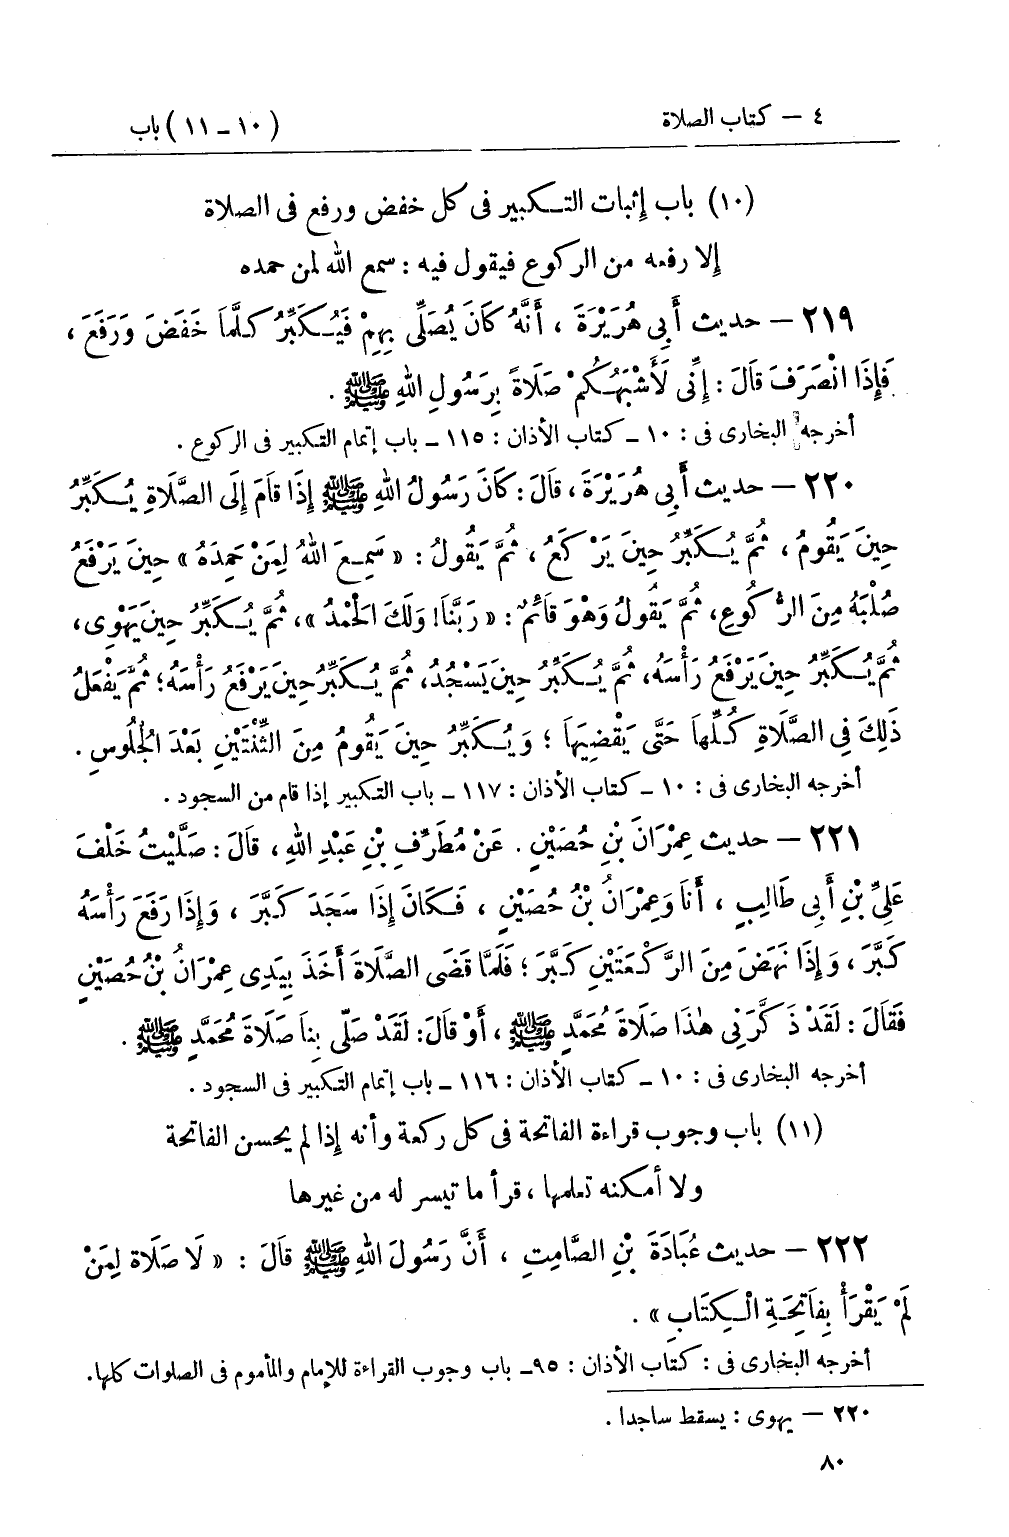 ٤ – كتاب الصلاة
(١٠ – ١١) باب
(١٠) باب إثبات التكبير فى كل خفض ورفع فى الصلاة
إلا رفعه من الركوع فيقول فيه : سمع الله لمن حمده
٢١٩ – حديث أَبِى هُرَيْرَةَ ، أَنَّهُ كَانَ يُصَلِّى بِهِمْ فَيُكَبِّرُ كلَّمَا خَفَضَ وَرَفَعَ ،
فَإِذَا انْصَرَفَ قَالَ : إِنِّى لَأَشْبَهُكُمْ صَلَاةً بِرَسُولِ اللهِ ﷺ .
أخرجه البخارى فى : ١٠ – كتاب الأذان : ١١٥ – باب إتمام التكبير فى الركوع .
٢٢٠ – حديث أَبِى هُرَيْرَةَ ، قَالَ : كَانَ رَسُولُ اللهِ ﷺ إِذَا قَامَ إِلَى الصَّلَاةِ يُكَبِّرُ
حِينَ يَقُومُ ، ثُمَّ يُكَبِّرُ حِينَ يَرْكَعُ ، ثُمَّ يَقُولُ : « سَمِعَ اللهُ لِمَنْ حَمِدَهُ » حِينَ يَرْفَعُ
صُلْبَهُ مِنَ الرُّكُوعِ، ثُمَّ يَقُولُ وَهُوَ قَائِمٌ : « رَبَّنَا! وَلَكَ الْحَمْدُ »، ثُمَّ يُكَبِّرُ حِينَ يَهْوِى،
ثُمَّ يُكَبِّرُ حِينَ يَرْفَعُ رَأْسَهُ، ثُمَّ يُكَبِّرُ حِينَ يَسْجُدُ، ثُمَّ يُكَبِّرُ حِينَ يَرْفَعُ رَأْسَهُ؛ ثُمَّ يَفْعَلُ
ذَلِكَ فِى الصَّلَاةِ كُلِّهَا حَتَّى يَقْضِيَهَا ؛ وَيُكَبِّرُ حِينَ يَقُومُ مِنَ الثِّنْتَيْنِ بَعْدَ الْجُلُوسِ .
أخرجه البخارى فى : ١٠ – كتاب الأذان : ١١٧ – باب التكبير إذا قام من السجود .
٢٢١ – حديث عِمْرَانَ بْنِ حُصَيْنٍ . عَنْ مُطَرِّفِ بْنِ عَبْدِ اللهِ ، قَالَ : صَلَّيْتُ خَلْفَ
عَلِىِّ بْنِ أَبِى طَالِبٍ ، أَنَا وَعِمْرَانُ بْنُ حُصَيْنٍ ، فَكَانَ إِذَا سَجَدَ كَبَّرَ ، وَإِذَا رَفَعَ رَأْسَهُ
كَبَّرَ ، وَإِذَا نَهَضَ مِنَ الرَّكْعَتَيْنِ كَبَّرَ ؛ فَلَمَّا قَضَى الصَّلَاةَ أَخَذَ بِيَدِى عِمْرَانُ بْنُ حُصَيْنٍ
فَقَالَ : لَقَدْ ذَكَّرَنِى هٰذَا صَلَاةَ مُحَمَّدٍ ﷺ ، أَوْ قَالَ: لَقَدْ صَلَّى بِنَا صَلَاةَ مُحَمَّدٍ ﷺ .
أخرجه البخارى فى : ١٠ – كتاب الأذان : ١١٦ – باب إتمام التكبير فى السجود .
(١١) باب وجوب قراءة الفاتحة فى كل ركعة وأنه إذا لم يحسن الفاتحة
ولا أمكنه تعلمها ، قرأ ما تيسر له من غيرها
٢٢٢ – حديث عُبَادَةَ بْنِ الصَّامِتِ ، أَنَّ رَسُولَ اللهِ ﷺ قَالَ : « لَا صَلَاةَ لِمَنْ
لَمْ يَقْرَأْ بِفَاتِحَةِ الْكِتَابِ » .
أخرجه البخارى فى : كتاب الأذان : ٩٥ – باب وجوب القراءة للإمام والمأموم فى الصلوات كلها.
٢٢٠ – يهوى : يسقط ساجدا .
٨٠